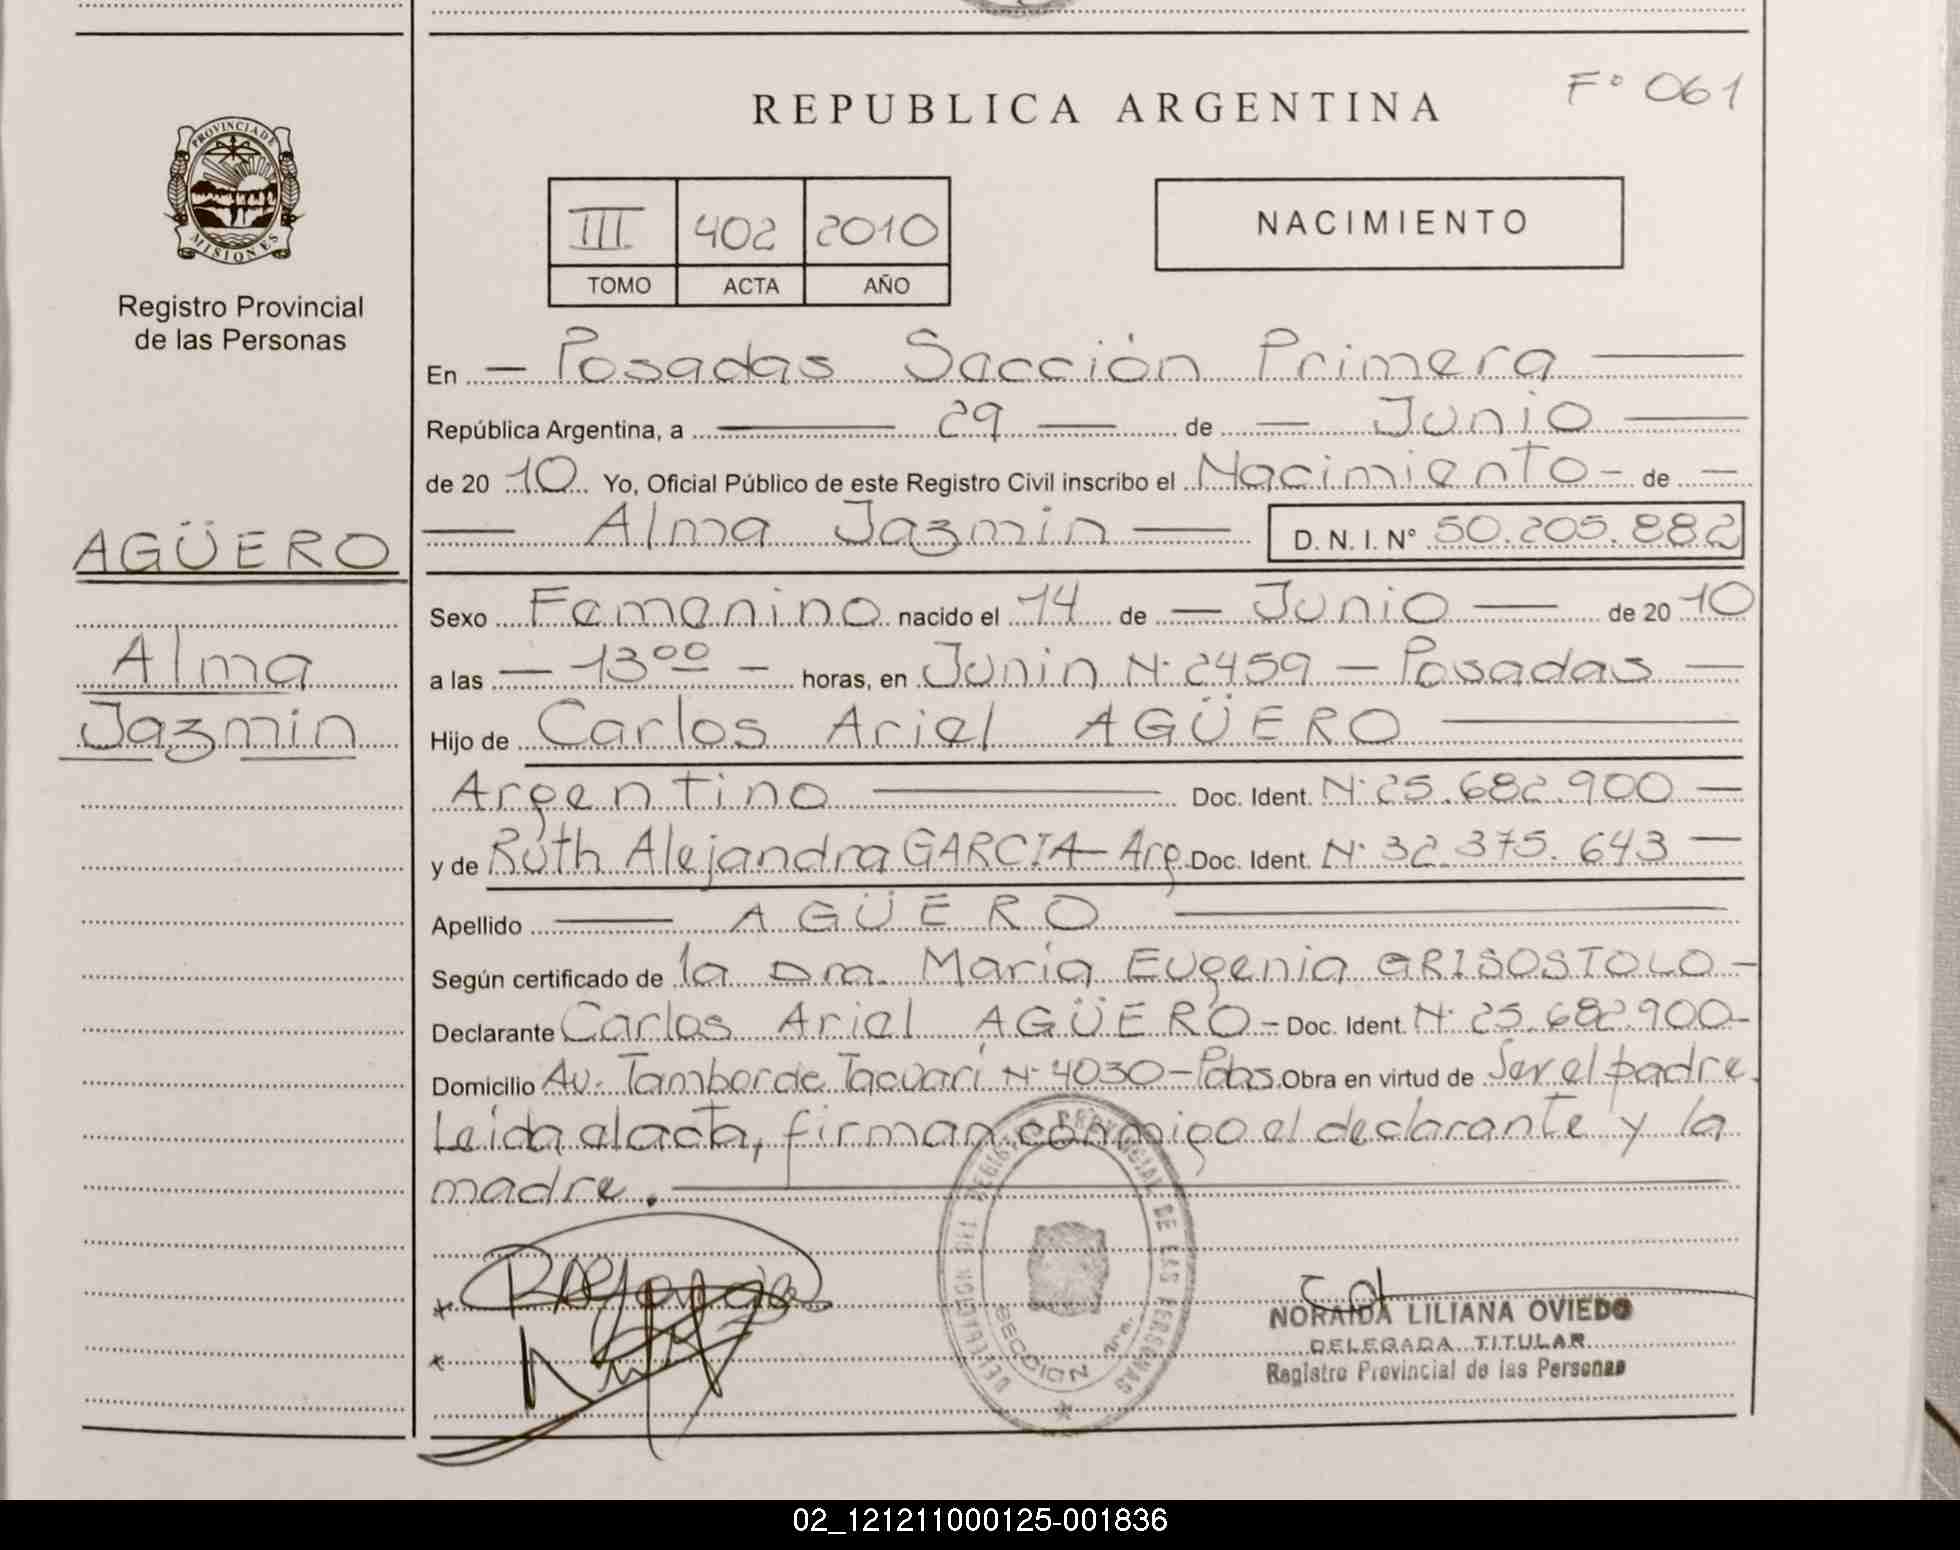 F° 061
REPUBLICA ARGENTINA
PROVINCIA DE
MISIONES
Registro Provincial
de las Personas
III 402 2010
TOMO ACTA AÑO
NACIMIENTO
En — Posadas Sacción Primera —
República Argentina, a — 29 — de — Junio —
de 20 10 Yo, Oficial Público de este Registro Civil inscribo el Nacimiento - de —
— Alma Jazmin — D. N. I. N° 50.205.882
AGÜERO
Alma
Jazmin
Sexo Femenino nacido el 14 de — Junio — de 20 10
a las — 13°° — horas, en Junin N· 2459 — Posadas —
Hijo de Carlos Ariel AGÜERO —
Argentino — Doc. Ident. N· 25.682.900 —
y de Ruth Alejandra GARCIA — Arg. Doc. Ident. N· 32.375.643 —
Apellido — AGÜERO —
Según certificado de la Dra. María Eugenia GRISOSTOLO -
Declarante Carlos Ariel AGÜERO - Doc. Ident. N· 25.682.900 -
Domicilio Av. Tamborde Tacuarí N· 4030 - Pdas. Obra en virtud de Ser el padre.
Leída alacta, firman conmigo el declarante y la
madre. —
DELEGACION DEL REGISTRO PROVINCIAL DE LAS PERSONAS
SECCION 1ra.
NORAIDA LILIANA OVIEDO
DELEGADA TITULAR
Registro Provincial de las Personas
02_121211000125-001836